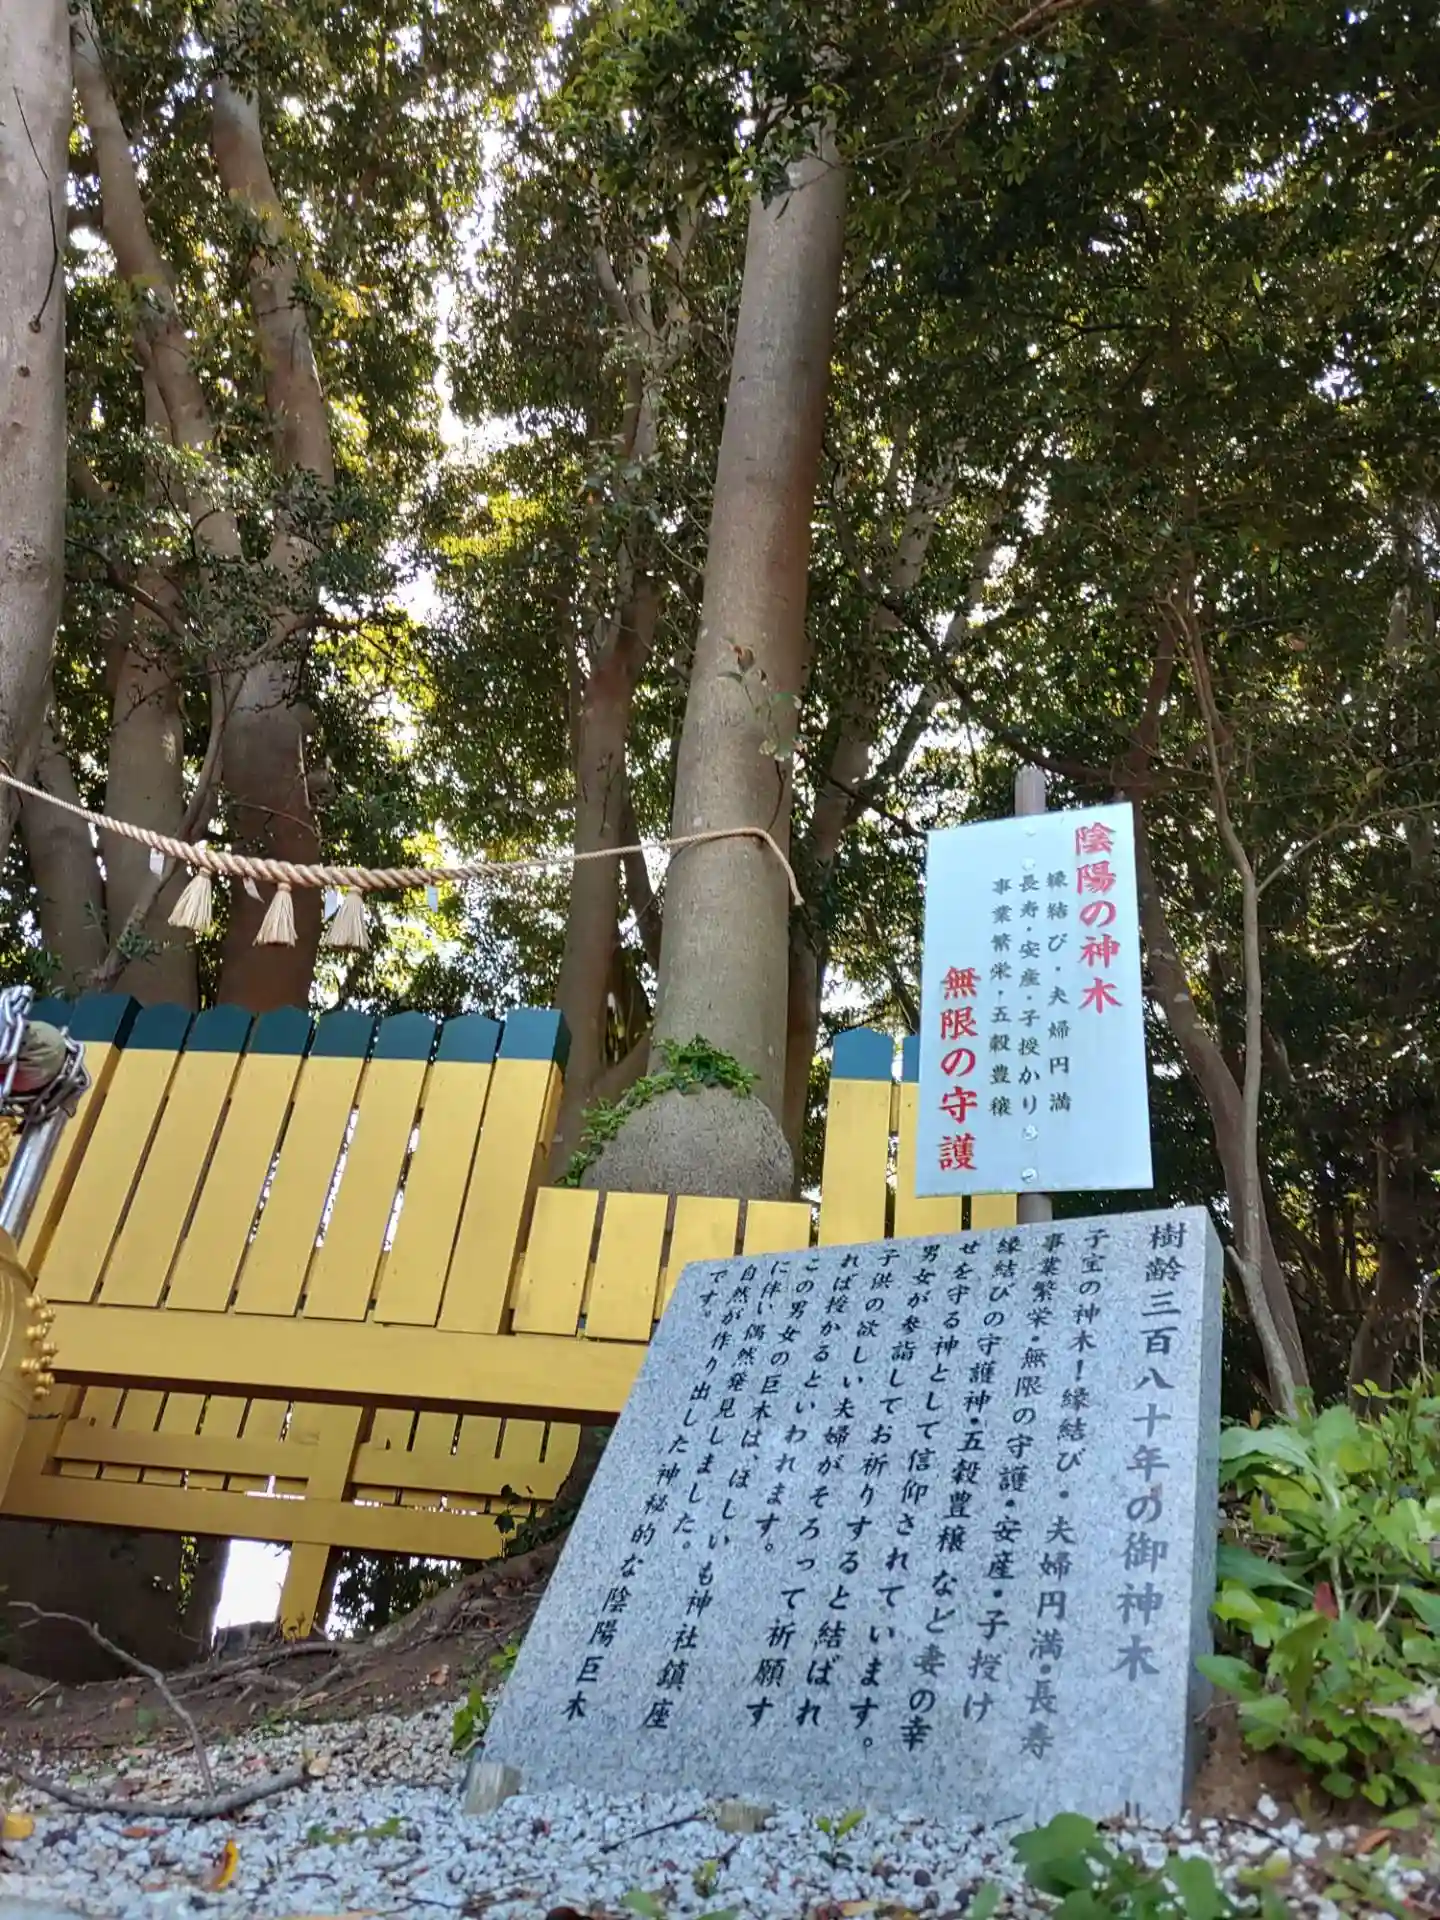 陰陽の神木
縁結び・夫婦円満
長寿・安産・子授かり
事業繁栄・五穀豊穣
無限の守護
樹齢三百八十年の御神木
子宝の神木!縁結び・夫婦円満・長寿
事業繁栄・無限の守護・安産・子授け
縁結びの守護神・五穀豊穣など妻の幸
せを守る神として信仰されています。
男女が参詣してお祈りすると結ばれ
子供の欲しい夫婦がそろって祈願す
れば授かるといわれます。
この男女の巨木は、ほしいも神社鎮座
に伴い偶然発見しました。
自然が作り出した神秘的な陰陽巨木
です。